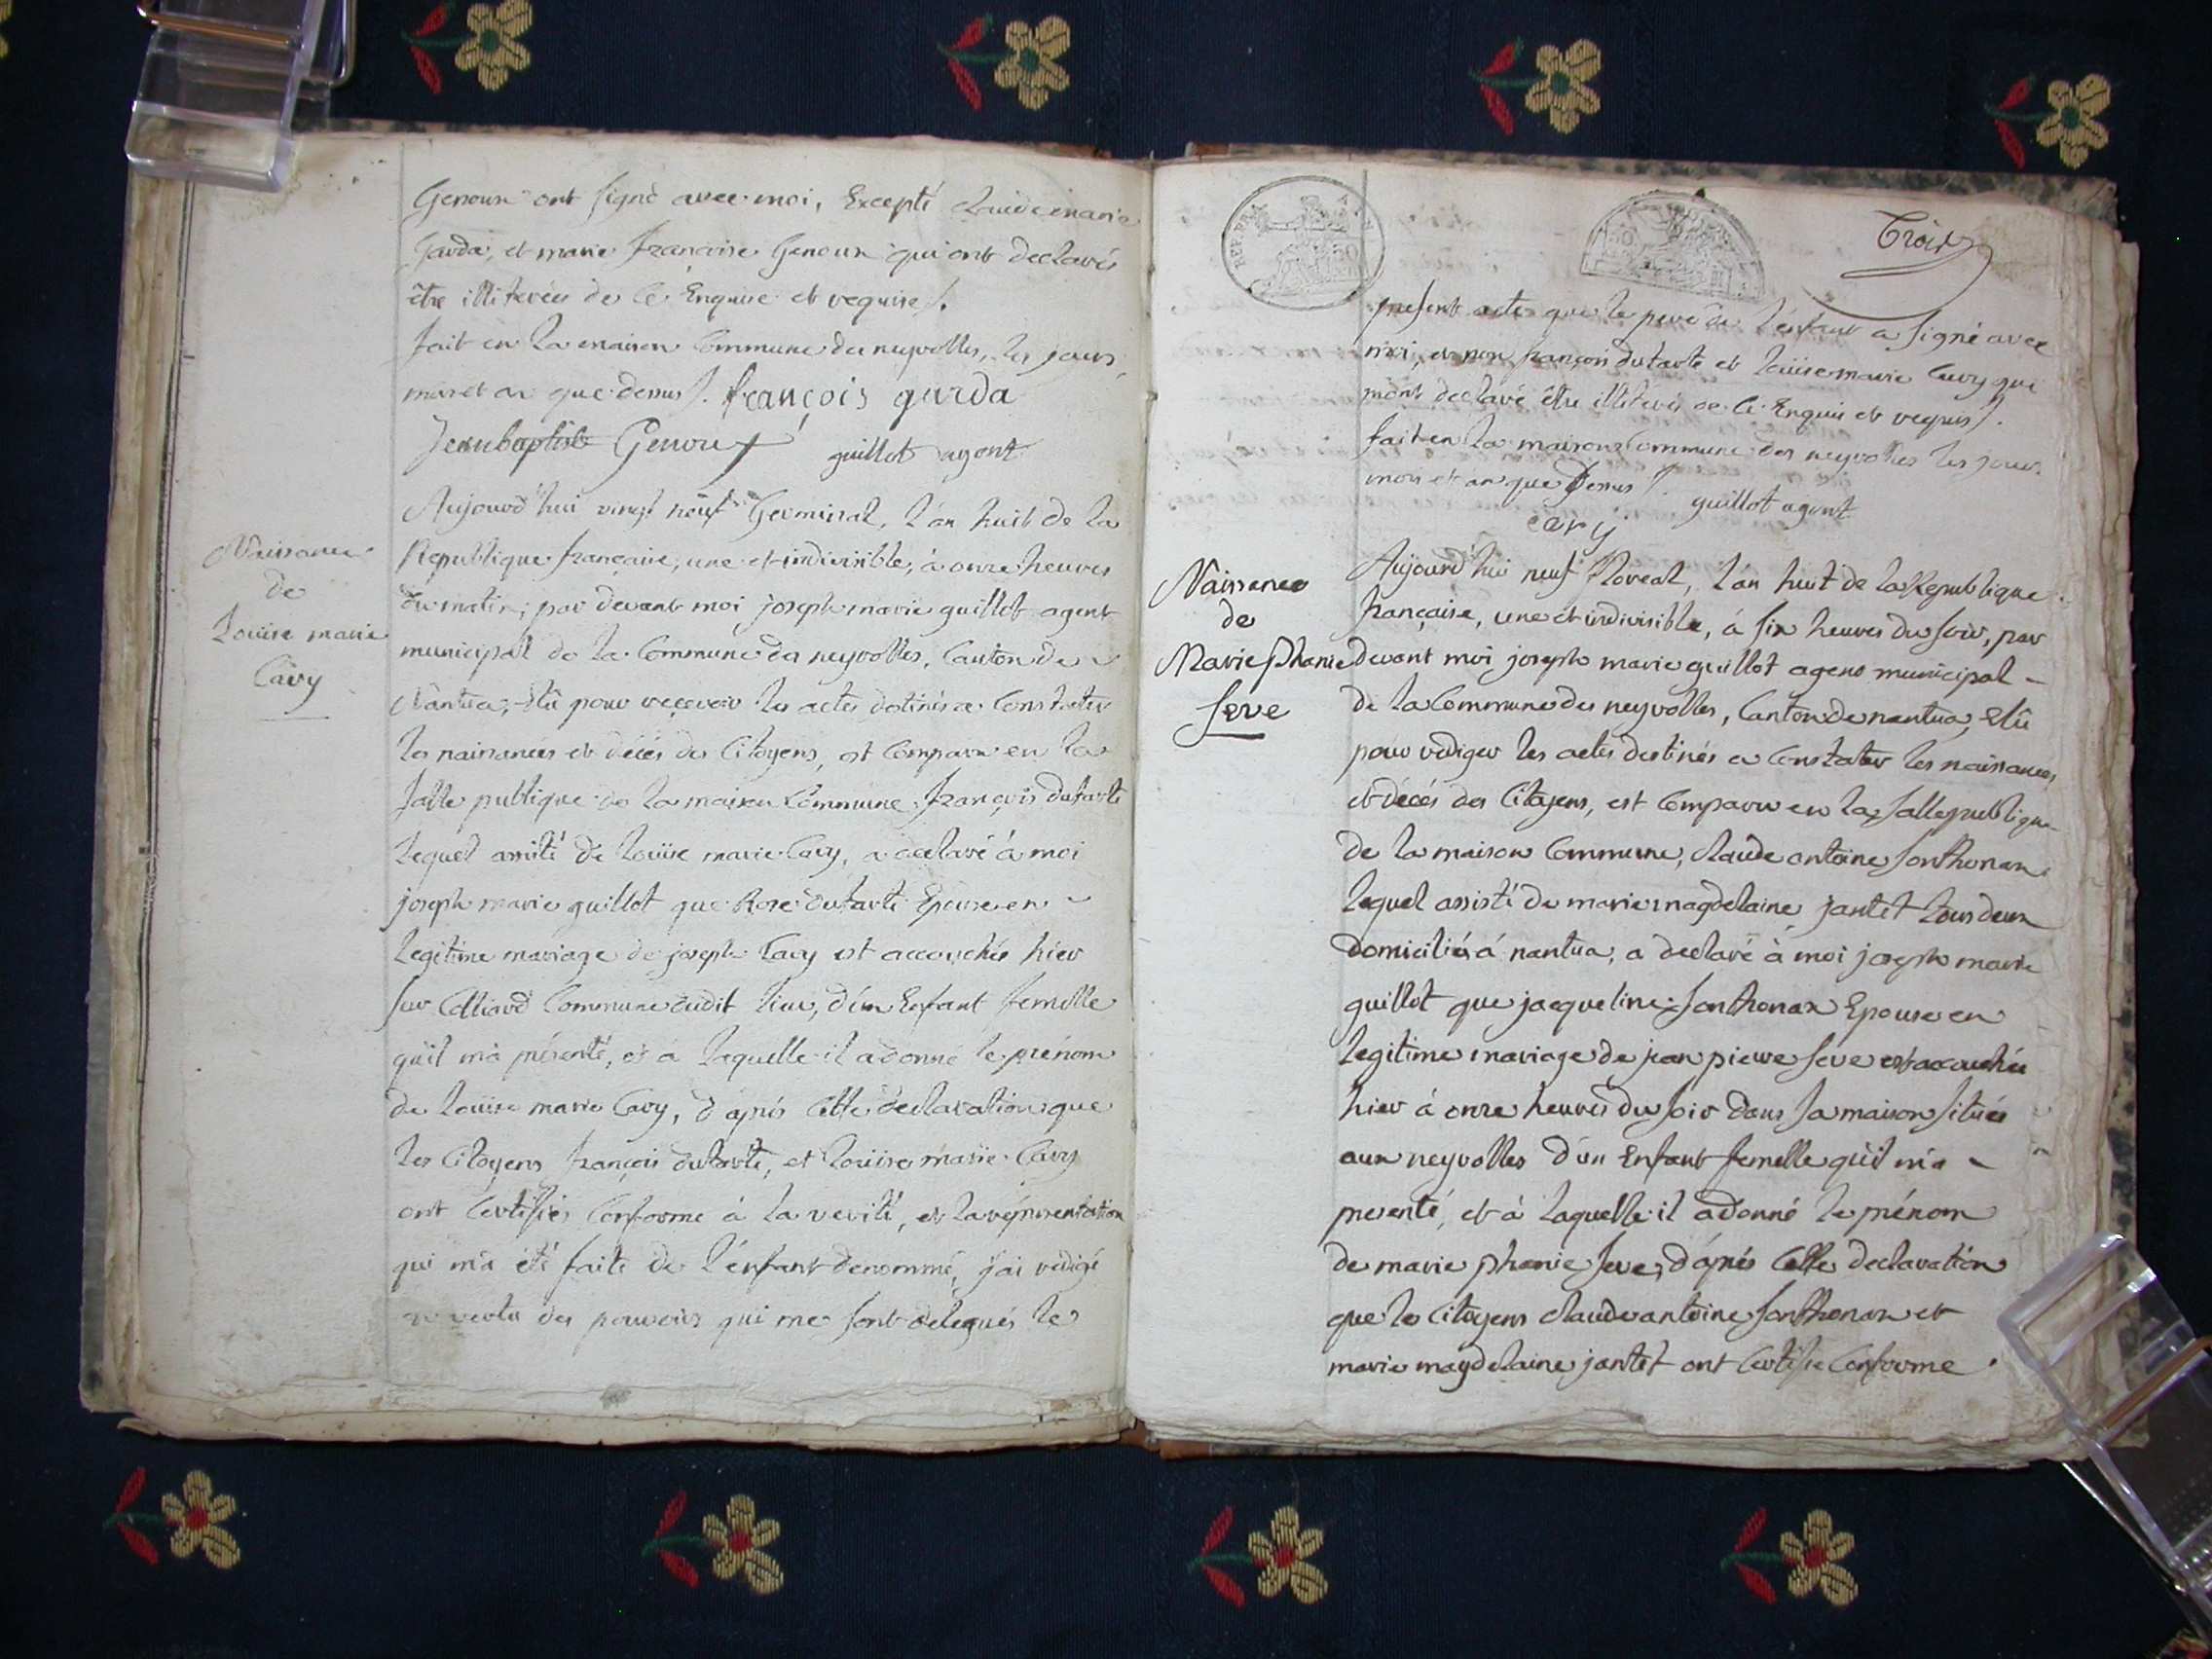 Genoux ont signé avec moi, Excepté claudemarie
Garda, et marie francoise Genoux qui ont declarés
être illiterées de ce Enquise et requises.
fait en la maison Commune des neyrolles, les jour,
mois et an que dessus. françois gurda
Jeanbaptiste Genoux guillot agent
Naissance
de
Louise marie
Cavy
Aujourd'hui vingt neuf Germinal, l'an huit de la
Republique française, une et indivisible, à onze heures
du matin, par devant moi joseph marie guillot agent
municipal de la Commune des neyrolles, Canton de
Nantua, élû pour recevoir les actes destinés a Constater
les naissances et décés des Citoyens, est Comparu en la
salle publique de la maison Commune, françois dutarte
lequel assisté de Louise marie Cavy, a declaré à moi
joseph marie guillot que Rose dutarte Epouse en
legitime mariage de joseph Cavy est accouchée hier
sur Colliard Commune dudit lieu, d'un Enfant femelle
qu'il m'a présenté, et à laquelle il a donné le prénom
de Louise marie Cavy, d'après cette declaration que
les Citoyens françois dutarte, et Louise marie Cavy
ont Certifiés Conforme à la verité, et la réprésentation
qui m'a été faite de l'énfant denommé, j'ai redigé
en vertu des pouvoirs qui me sont delegués le
REP. FRA
50
Trois
present acte que le pere de l'énfant a signé avec
moi, et non françois dutarte et Louise marie Cavy qui
m'ont declaré être illiterés de ce Enquis et requis.
fait en la maison Commune des neyrolles les jour
mois et an que Dessus. guillot agent
cavy
Naissance
de
Marie Phanie
Seve
Aujourd'hui neuf floreal, l'an huit de la Republique
française, une et indivisible, à six heures du soir, par
devant moi joseph marie guillot agent municipal
de la Commune des neyrolles, Canton de nantua, Elû
pour rediger les actes destinés a Constater les naissances
et décés des Citoyens, est Comparu en la salle publique
de la maison Commune, claude antoine sonthonax
lequel assisté de marie magdelaine jantet tous deux
domiciliés à nantua, a declaré à moi joseph marie
guillot que jacqueline sonthonax Epouse en
legitime mariage de jean pierre seve est accouchée
hier à onze heures du soir dans sa maison située
aux neyrolles d'un Enfant femelle qu'il m'a
presenté, et à laquelle il a donné le prénom
de marie phanie seve, d'après cette declaration
que les Citoyens claude antoine sonthonax et
marie magdelaine jantet ont Certifié Conforme